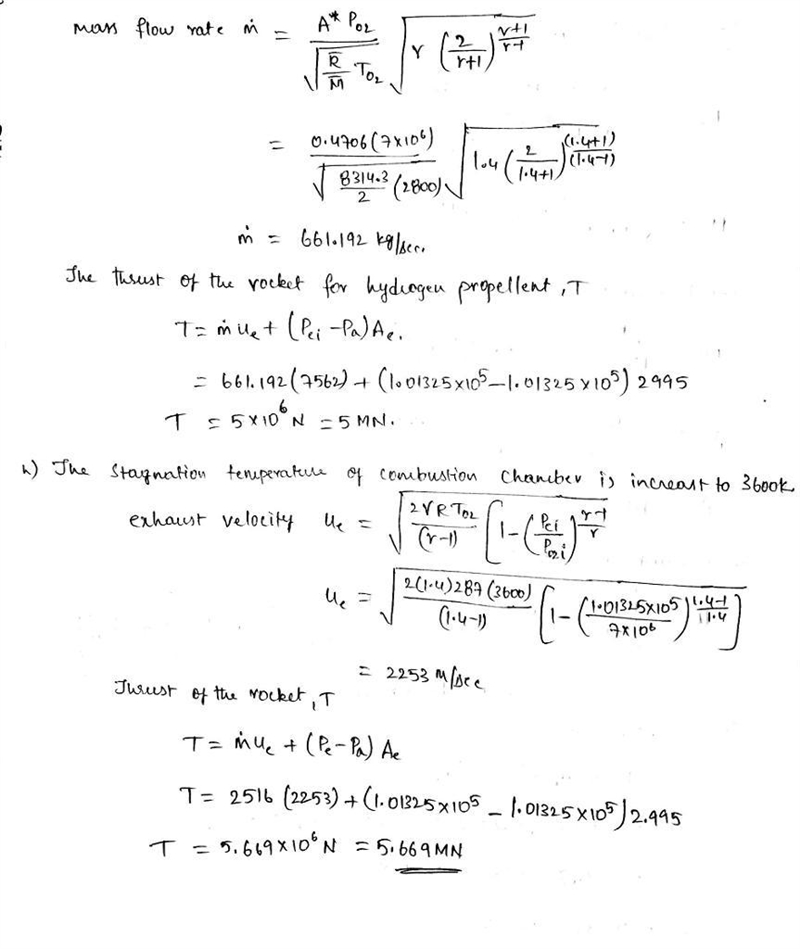 mass flow rate ṁ = A* P02 / √(R̄/M̄ T02) √(γ (2/(γ+1))^((γ+1)/(γ-1)))
= 0.4706(7×10^6) / √(8314.3/2 (2800)) √(1.4 (2/(1.4+1))^((1.4+1)/(1.4-1)))
ṁ = 661.192 kg/sec.
The thrust of the rocket for hydrogen propellent, T
T = ṁ ue + (Pei - Pa) Ae.
= 661.192(7562) + (1.01325×10^5 - 1.01325×10^5) 2995
T = 5×10^6 N = 5 MN.
h) The stagnation temperature of combustion chamber is increast to 3600k
exhaust velocity ue = √(2γRT02/(γ-1) [1-(Pei/P02i)^((γ-1)/γ)])
ue = √(2(1.4)287(3600)/(1.4-1) [1-(1.01325×10^5/7×10^6)^((1.4-1)/1.4)])
= 2253 m/sec
Thrust of the rocket, T
T = ṁue + (Pe-Pa) Ae
T = 2516 (2253) + (1.01325×10^5 - 1.01325×10^5) 2.995
T = 5.669×10^6 N = 5.669 MN